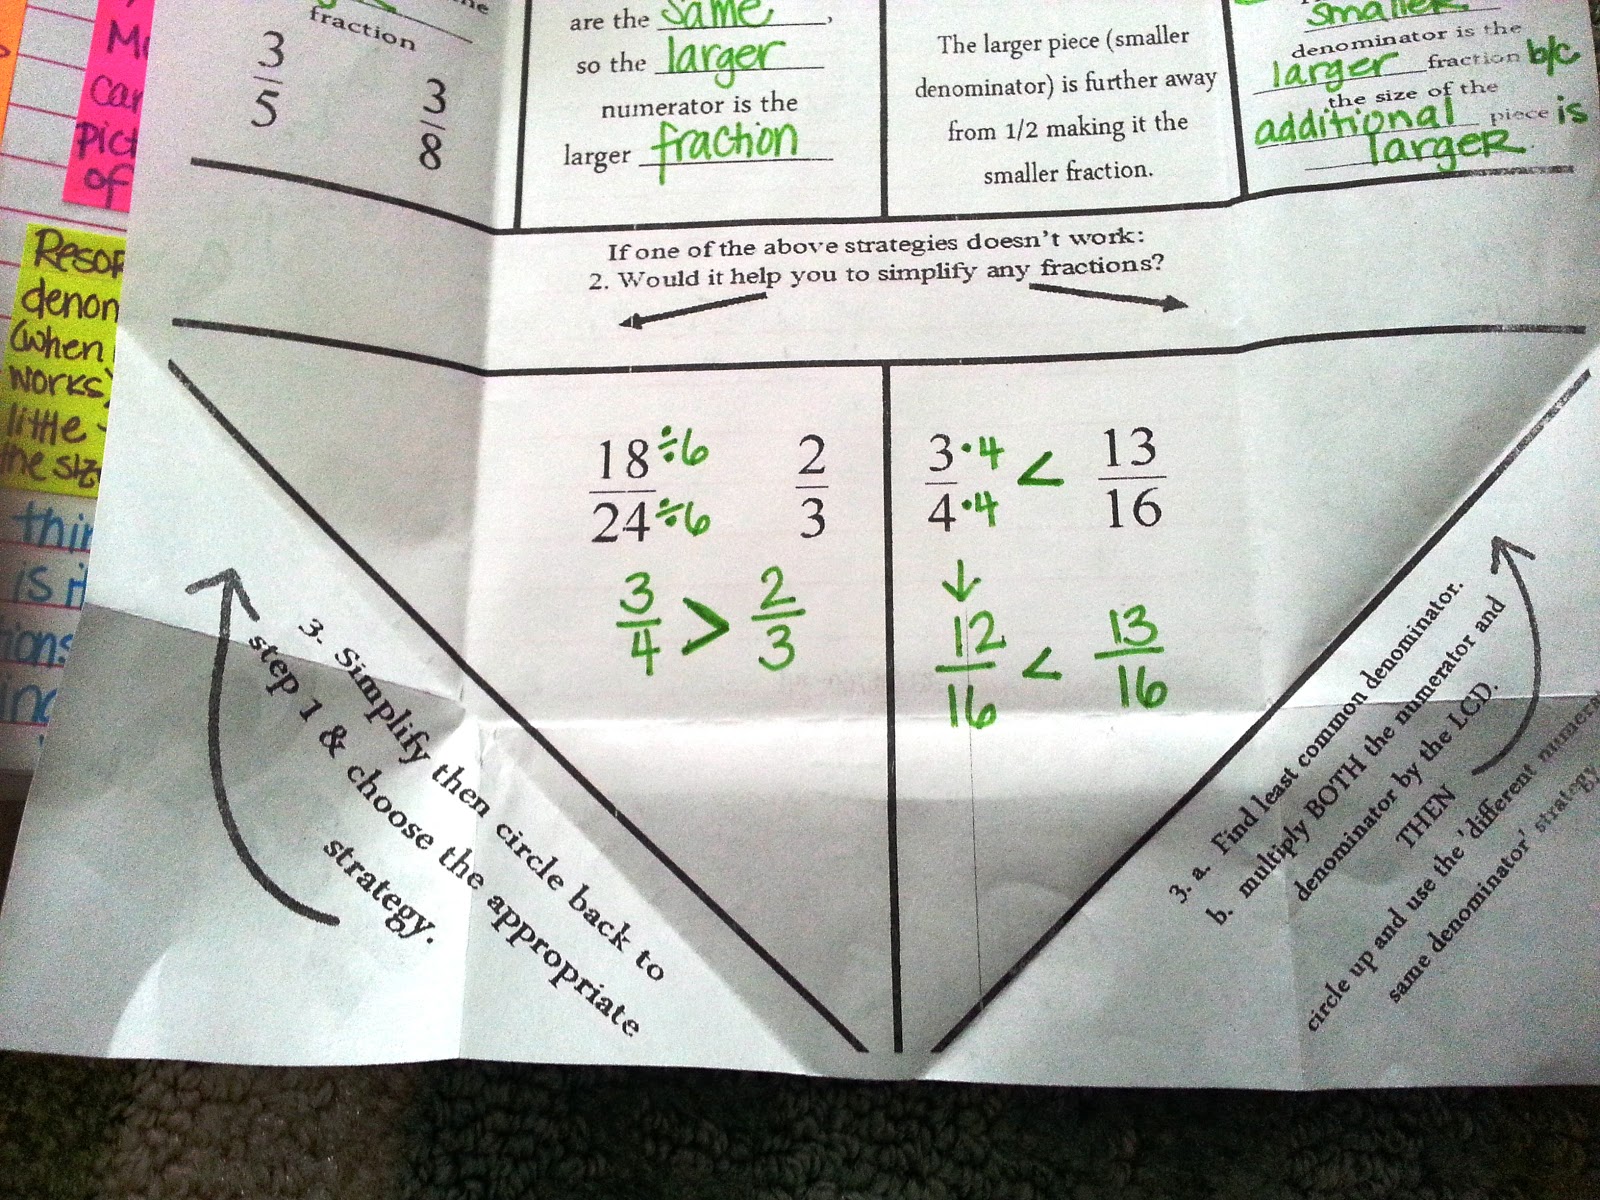 fraction
3
5
3
8
are the same,
so the larger
numerator is the
larger fraction
The larger piece (smaller
denominator) is further away
from 1/2 making it the
smaller fraction.
smaller
denominator is the
larger fraction b/c
the size of the
additional piece is
larger.
If one of the above strategies doesn't work:
2. Would it help you to simplify any fractions?
18 ÷6
24 ÷6
2
3
3
4
>
2
3
3 •4
4 •4
<
13
16
↓
12
16
<
13
16
3. Simplify then circle back to
step 1 & choose the appropriate
strategy.
3. a. Find least common denominator.
b. multiply BOTH the numerator and
denominator by the LCD.
THEN
circle up and use the 'different
same denominator' strategy
of
(when
works)
little
the
is